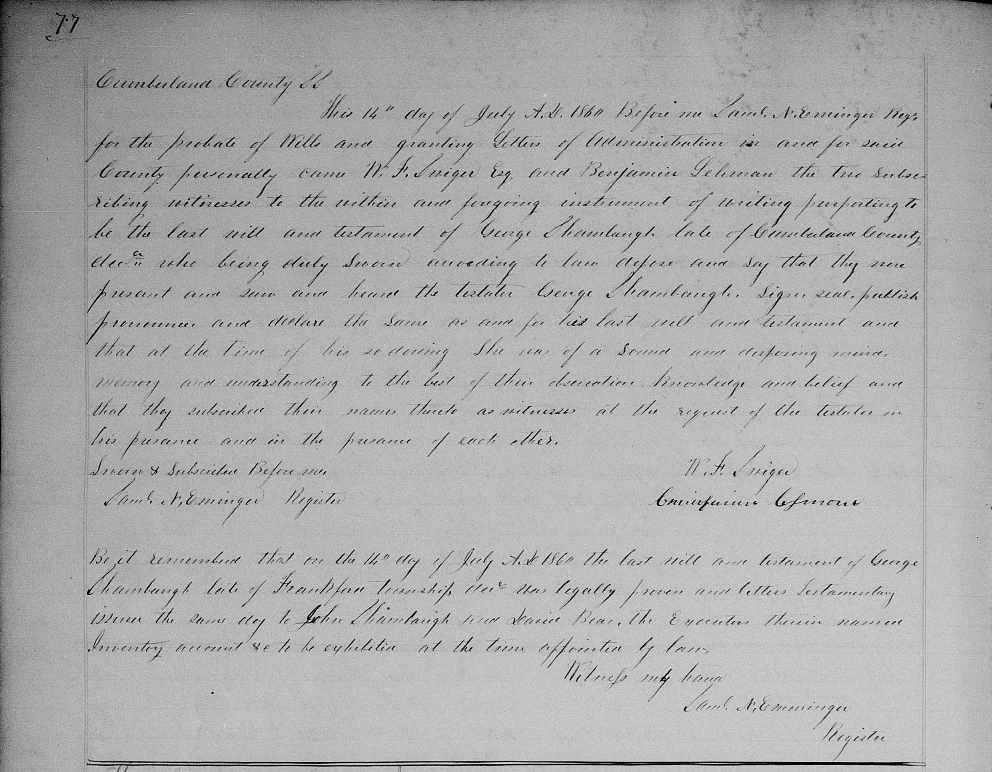 77
Cumberland County SS
This 14" day of July A.D. 1860 Before me Saml. N. Eminger Regr
for the probate of Wills and granting Letters of Administration in and for said
County personally came W. F. Swiger Esq and Benjamin Lehman the two subsc-
ribing witnesses to the within and forgoing instrument of writing purporting to
be the last will and testament of George Shambaugh late of Cumberland County
decd who being duly Sworn according to law depose and say that they were
present and saw and heard the testator George Shambaugh. Sign, seal, publish
pronounce and declare the same as and for his last will and testament and
that at the time of his so doing She was of a Sound and disposing mind.
memory and understanding to the best of their observation Knowledge and belief and
that they subscribed their names thereto as witnesses at the request of the testator in
his presence and in the presence of each other.
Sworn & Subscribed Before me W. F. Swiger
Saml. N. Eminger Register
Be it remembered that on the 14" day of July A.D. 1860 the last will and testament of George
Shambaugh late of Frankford township decd was legally proven and letters Testamentary
issued the same day to John Shambaugh and David Bear, the Executors therein named
Inventory account &c to be exhibited at the time appointed by law.
Witness my hand
Saml. N. Emminger
Register